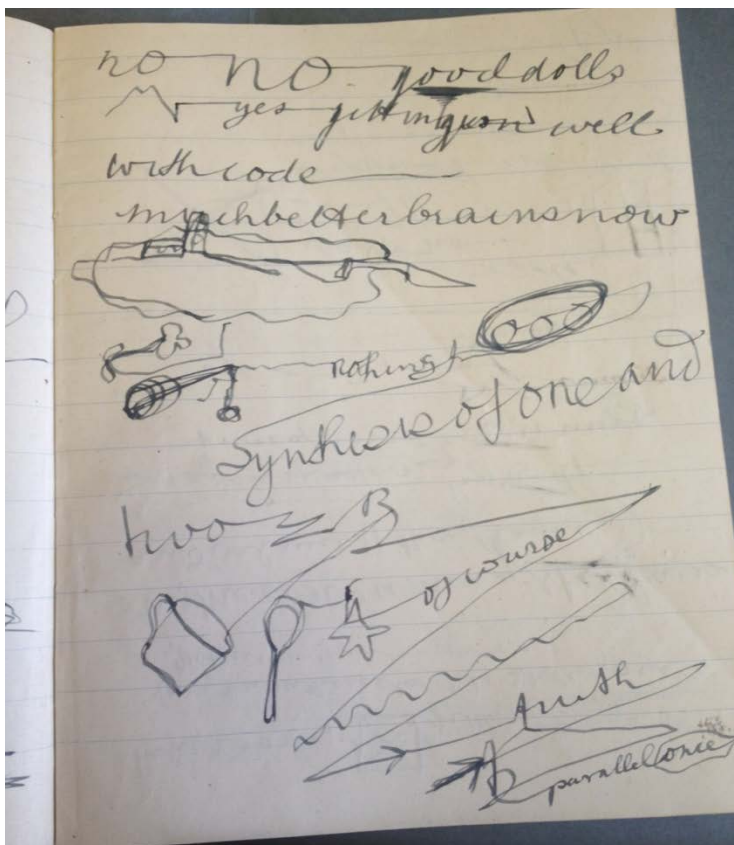 no NO good dolls
yes getting on well
with code
much better brains now
Synthesis of one and
two = B
of course
truth
parallel once